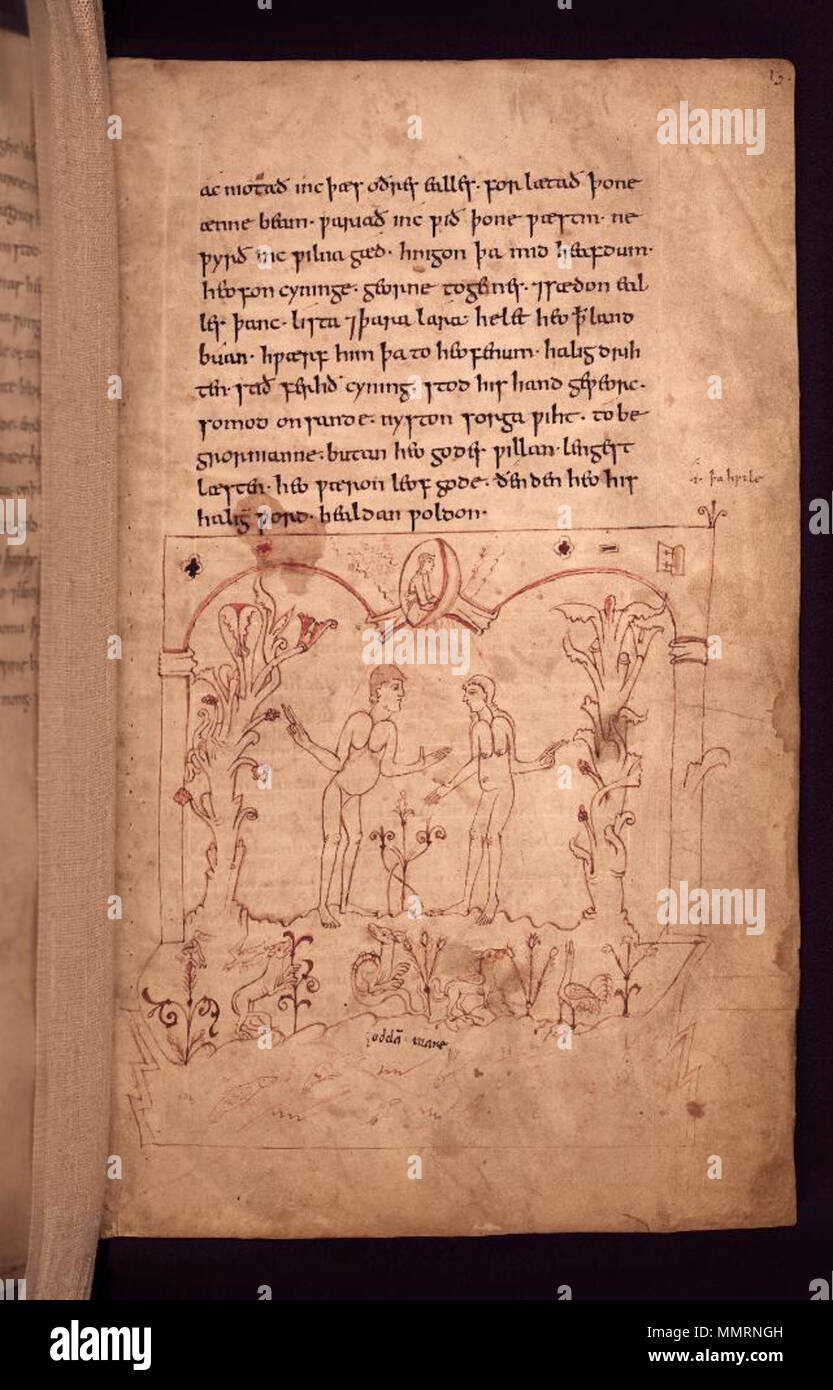 13.
ac niotað inc þæs oðres ealles· for lætað þone
ænne beam· ƿariað inc ƿið þone ƿæstm· ne
ƿyrð inc ƿilna gæd· hnigon þa mid heafdum·
heofon cyninge· georne togenes· ⁊sædon eal
les þanc· lista ⁊þara lara· helet heo þ̄ land
buan· hƿærf him þa to heofenum· halig drih
ten· stið ferhð cyning· stod his hand geƿeorc·
somod onsande· nyston sorga ƿiht· to be
grornianne· butan heo godes ƿillan· lengest
læsten· heo ƿæron leof gode· ðenden heo his
halig ƿord· healdan ƿoldon·
·i· þa hƿile
alamy
alamy
Image ID: MMRNGH
www.alamy.com